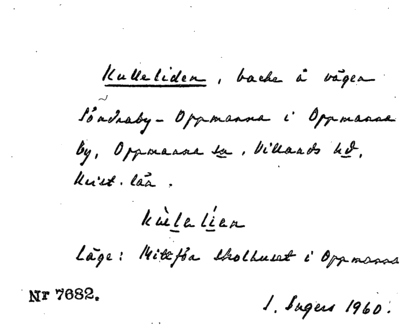 Kulleliden, backe å vägen
Söndraby - Oppmanna i Oppmanna
by, Oppmanna sn, Villands hd,
Krist. län.
kùlalían
Läge: Mittför skolhuset i Oppmanna
Nr 7682.
I. Ingers 1960.